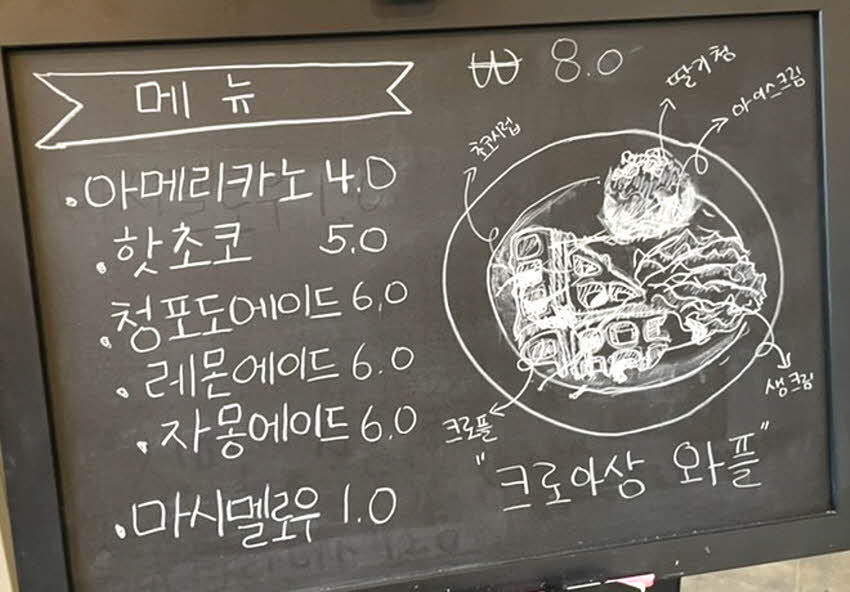 메뉴
· 아메리카노 4.0
· 핫초코 5.0
· 청포도에이드 6.0
· 레몬에이드 6.0
· 자몽에이드 6.0
· 마시멜로우 1.0
₩ 8.0
딸기청
아이스크림
초코시럽
생크림
크로플
"크로아상 와플"